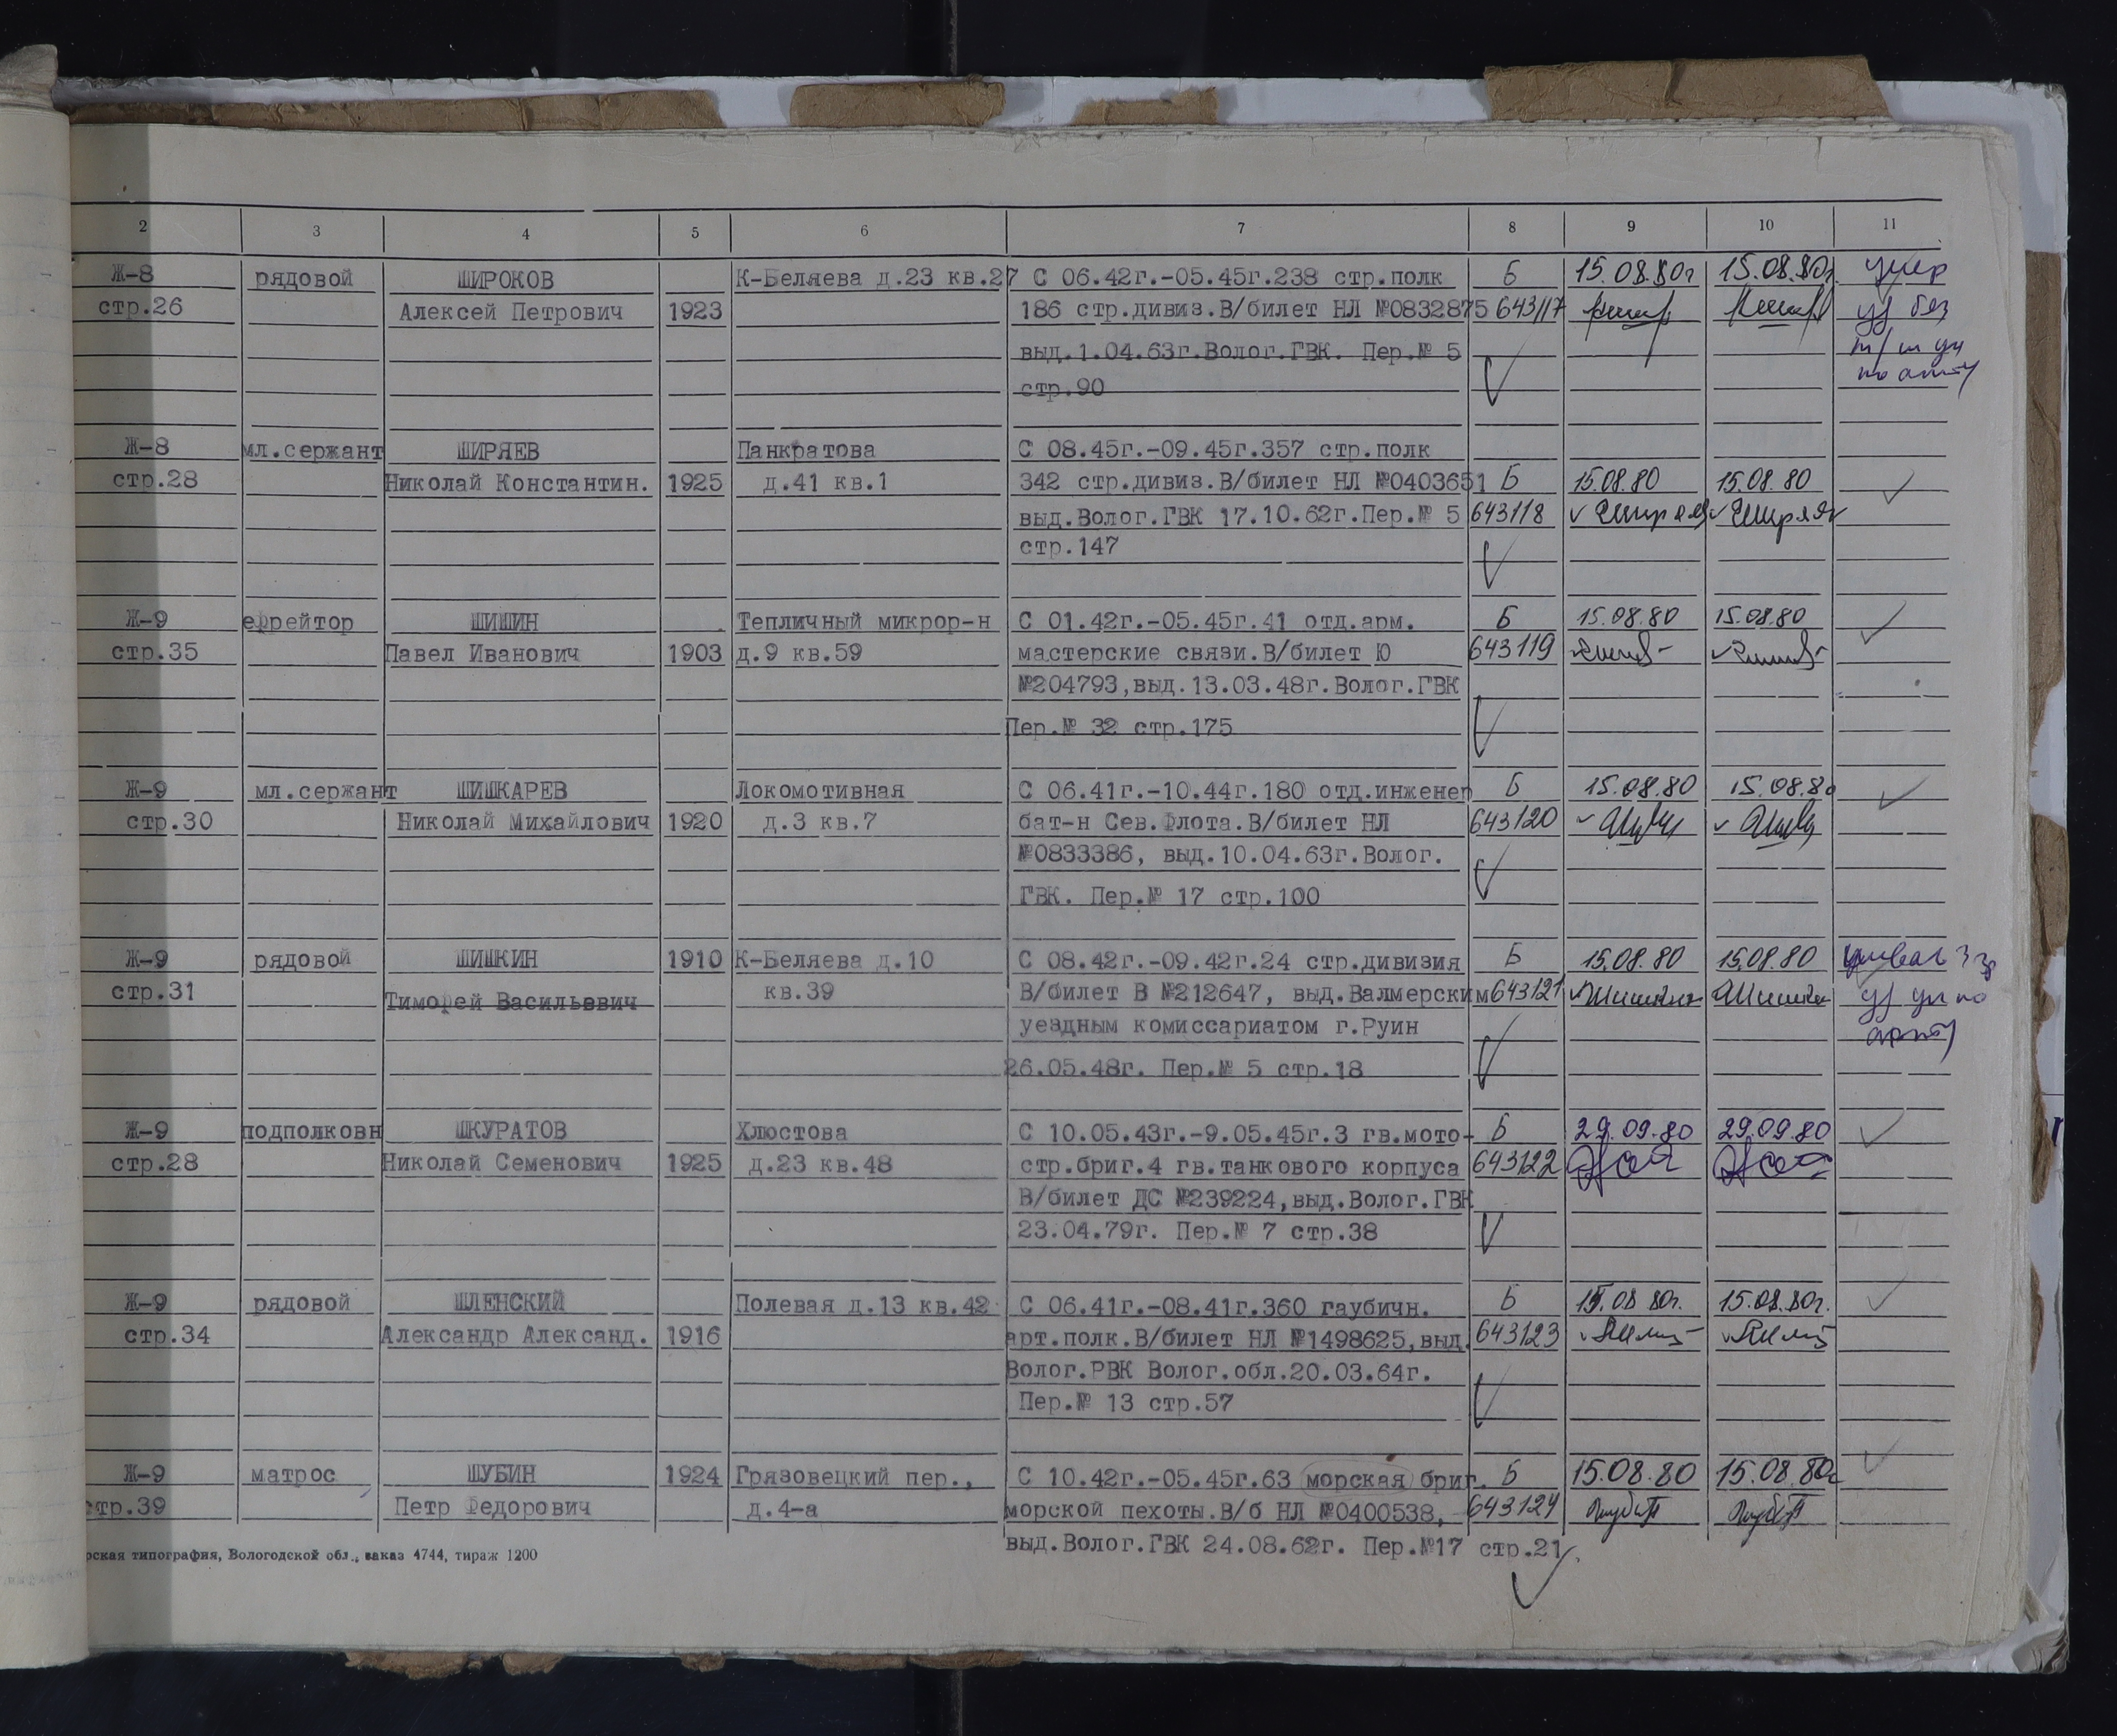 2 3 4 5 6 7 8 9 10 11
Ж-8 рядовой ШИРОКОВ К-Беляева д.23 кв.27 С 06.42г.-05.45г.238 стр.полк Б 15.08.80г 15.08.80г. умер
стр.26 Алексей Петрович 1923 186 стр.дивиз.В/билет НЛ №0832875 643117 уд без
выд.1.04.63г.Волог.ГВК. Пер.№ 5
стр.90
Ж-8 мл.сержант ШИРЯЕВ Панкратова С 08.45г.-09.45г.357 стр.полк
стр.28 Николай Константин. 1925 д.41 кв.1 342 стр.дивиз.В/билет НЛ №0403651 Б 15.08.80 15.08.80
выд.Волог.ГВК 17.10.62г.Пер.№ 5 643118
стр.147
Ж-9 ефрейтор ШИШИН Тепличный микрор-н С 01.42г.-05.45г.41 отд.арм. Б 15.08.80 15.08.80
стр.35 Павел Иванович 1903 д.9 кв.59 мастерские связи.В/билет Ю 643119
№204793,выд.13.03.48г.Волог.ГВК
Пер.№ 32 стр.175
Ж-9 мл.сержант ШИШКАРЕВ Локомотивная С 06.41г.-10.44г.180 отд.инженер Б 15.08.80 15.08.80
стр.30 Николай Михайлович 1920 д.3 кв.7 бат-н Сев.Флота.В/билет НЛ 643120
№0833386, выд.10.04.63г.Волог.
ГВК. Пер.№ 17 стр.100
Ж-9 рядовой ШИШКИН 1910 К-Беляева д.10 С 08.42г.-09.42г.24 стр.дивизия Б 15.08.80 15.08.80
стр.31 Тимофей Васильевич кв.39 В/билет В №212647, выд.Валмерским 643121
уездным комиссариатом г.Руин
26.05.48г. Пер.№ 5 стр.18
Ж-9 подполковн ШКУРАТОВ Хлюстова С 10.05.43г.-9.05.45г.3 гв.мото- Б 29.09.80 29.09.80
стр.28 Николай Семенович 1925 д.23 кв.48 стр.бриг.4 гв.танкового корпуса 643122
В/билет ДС №239224,выд.Волог.ГВК
23.04.79г. Пер.№ 7 стр.38
Ж-9 рядовой ШЛЕНСКИЙ Полевая д.13 кв.42 С 06.41г.-08.41г.360 гаубичн. Б 15.08 80г. 15.08.80г.
стр.34 Александр Александ. 1916 арт.полк.В/билет НЛ №1498625,выд. 643123
Волог.РВК Волог.обл.20.03.64г.
Пер.№ 13 стр.57
Ж-9 матрос ШУБИН 1924 Грязовецкий пер., С 10.42г.-05.45г.63 морская бриг. Б 15.08.80 15.08.80г
стр.39 Петр Федорович д.4-а морской пехоты.В/б НЛ №0400538, 643124
выд.Волог.ГВК 24.08.62г. Пер.№17 стр.21.
рская типография, Вологодской обл., заказ 4744, тираж 1200